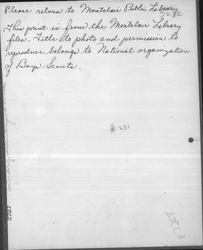 Please return to Montclair Public Library
This print is from the Montclair Library
files. Title to photo and permission to
reproduce belongs to National organization
of Boys Scouts.